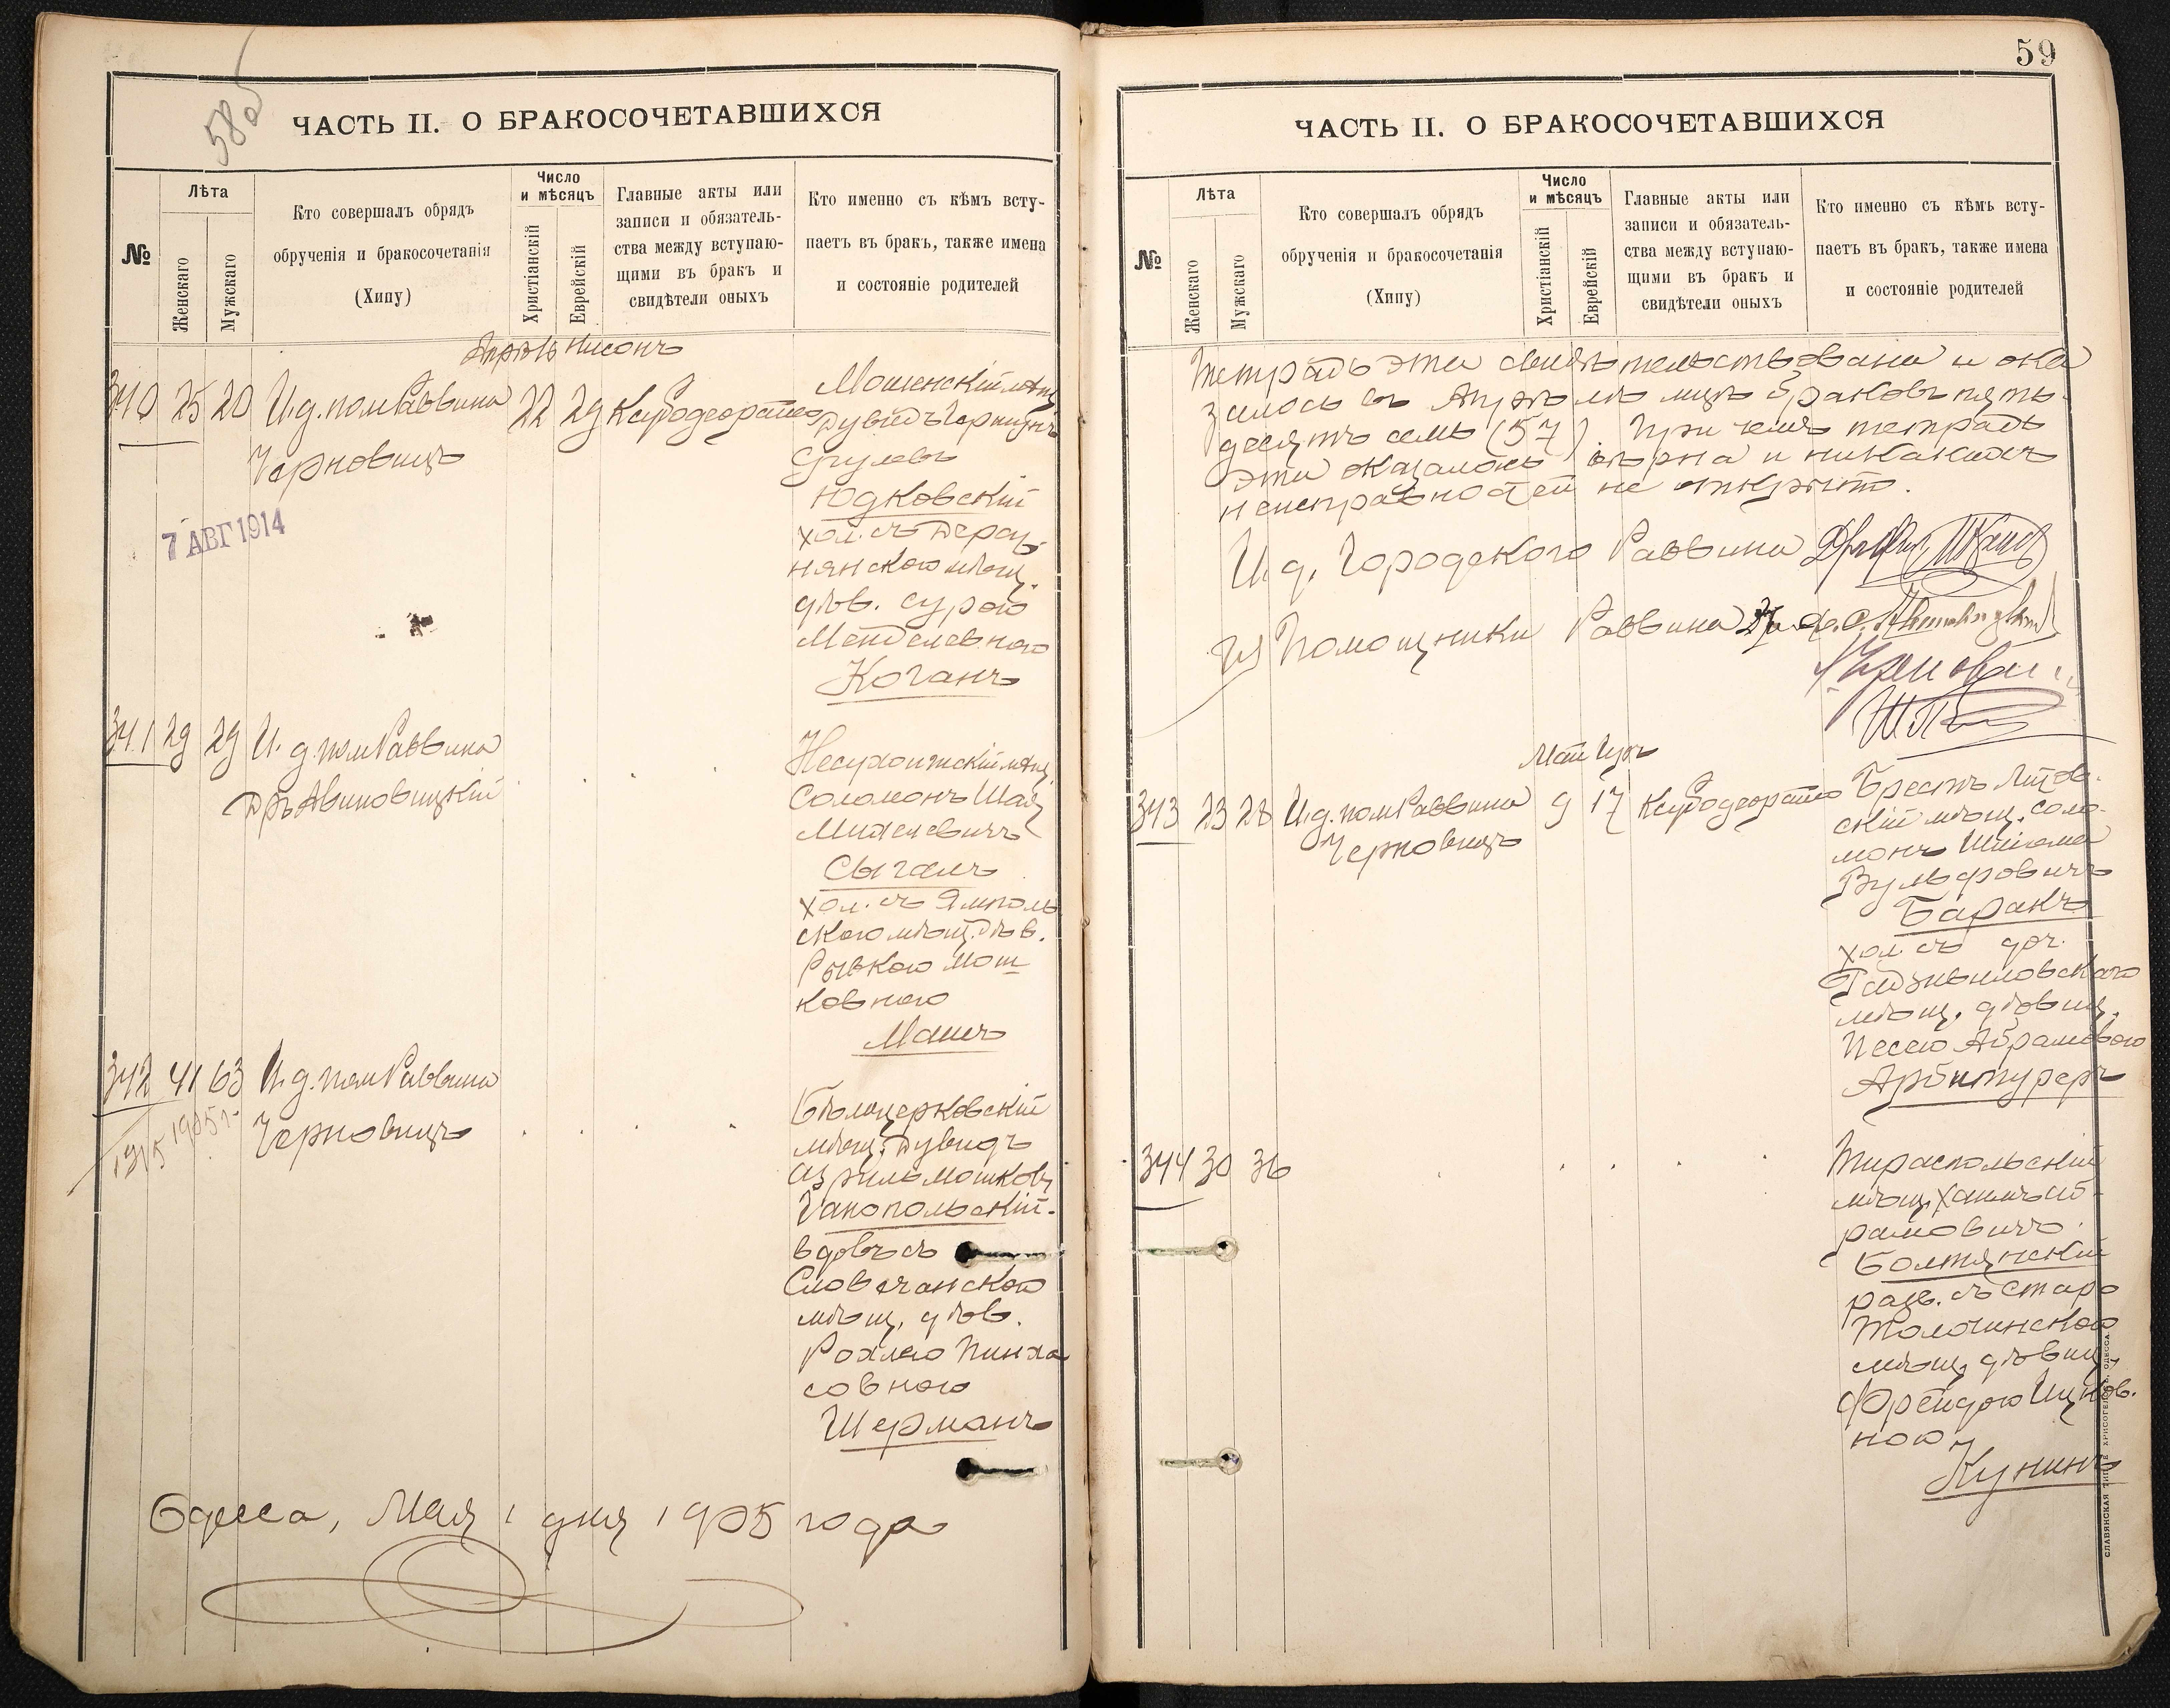 58об
ЧАСТЬ II. О БРАКОСОЧЕТАВШИХСЯ
№
Лѣта
Женскаго
Мужскаго
Кто совершалъ обрядъ
обрученія и бракосочетанія
(Хипу)
Число
и мѣсяцъ
Христіанскій
Еврейскій
Главные акты или
записи и обязатель-
ства между вступаю-
щими въ бракъ и
свидѣтели оныхъ
Кто именно съ кѣмъ всту-
паетъ въ бракъ, также имена
и состояніе родителей
Апрѣль Нисонъ
340 25 20 И.д. пом Раввина 22 29
Черновицъ
7 АВГ 1914
Мошенскій мѣщ.
Дувидъ
Срулевъ
Юдковскій
хол. съ Дераж-
нянскою мѣщ.
дѣв. Сурою
Менделевною
Коганъ
341 29 29 И. д. пом Раввина
Дръ Авиновицкій
мѣщ.
Соломонъ Шая
Сыгалъ
хол. съ Ямполь
скою мѣщ. дѣв.
Рывкою Мош
ковною
342 41 63 И. д. пом Раввина
Черновицъ
1905 г
Бѣлоцерковскій
мѣщ. Дувидъ
Азриль Мошков
Ганопольскій.
вдовъ съ
Словечанскою
мѣщ. дѣв.
Рохлею Пинха
совною
Шерманъ
Одесса, Мая 1 дня 1905 года
59
ЧАСТЬ II. О БРАКОСОЧЕТАВШИХСЯ
№
Лѣта
Женскаго
Мужскаго
Кто совершалъ обрядъ
обрученія и бракосочетанія
(Хипу)
Число
и мѣсяцъ
Христіанскій
Еврейскій
Главные акты или
записи и обязатель-
ства между вступаю-
щими въ бракъ и
свидѣтели оныхъ
Кто именно съ кѣмъ всту-
паетъ въ бракъ, также имена
и состояніе родителей
Тетрадь эта свидѣтельствована и ока
залось въ Апрѣлѣ мцѣ браковъ пять-
десятъ семь (57). При чемъ тетрадь
эта оказалась вѣрна и никакихъ
неисправностей не открыто.
И. д. Городского Раввина
Помощники Раввина
Май Іуръ
343 23 28 И.д. пом Раввина 9 17
Черновицъ
Брестъ Литов-
скій мѣщ. Соло-
монъ
Вульфовичъ
Баракъ
хол. съ доч.
мѣщ. дѣвиц.
Песею Абрамовою
Арбитуреръ
344 30 36
Тираспольскій
мѣщ. Хаимъ Аб-
рамовичъ
Болтянскій
разв. съ Старо
Толочинскою
мѣщ. дѣвиц.
Фрейдою Ицков.
ною
Кунинъ
СЛАВЯНСКАЯ ТИП. Е. ХРИСОГЕЛОСЪ, ОДЕССА.